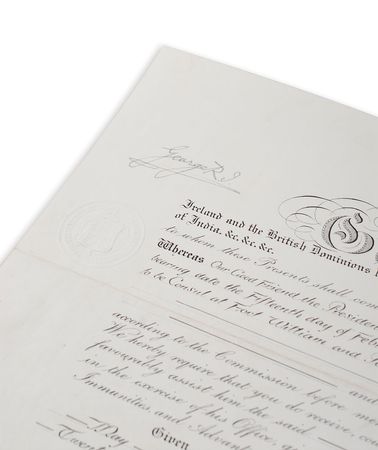 George R.I.
G
Ireland and the British Dominions
of India, &c, &c, &c.
to whom these Presents shall com
Whereas Our Good Friend the President
bearing date the Fifteenth day of Feb
to be Consul at Fort William and
according to the Commission before me
and
We hereby require that you do receive, coun
favourably assist him the said
in the exercise of his Office, gi
Immunities, and Advant
Given
May
Twent